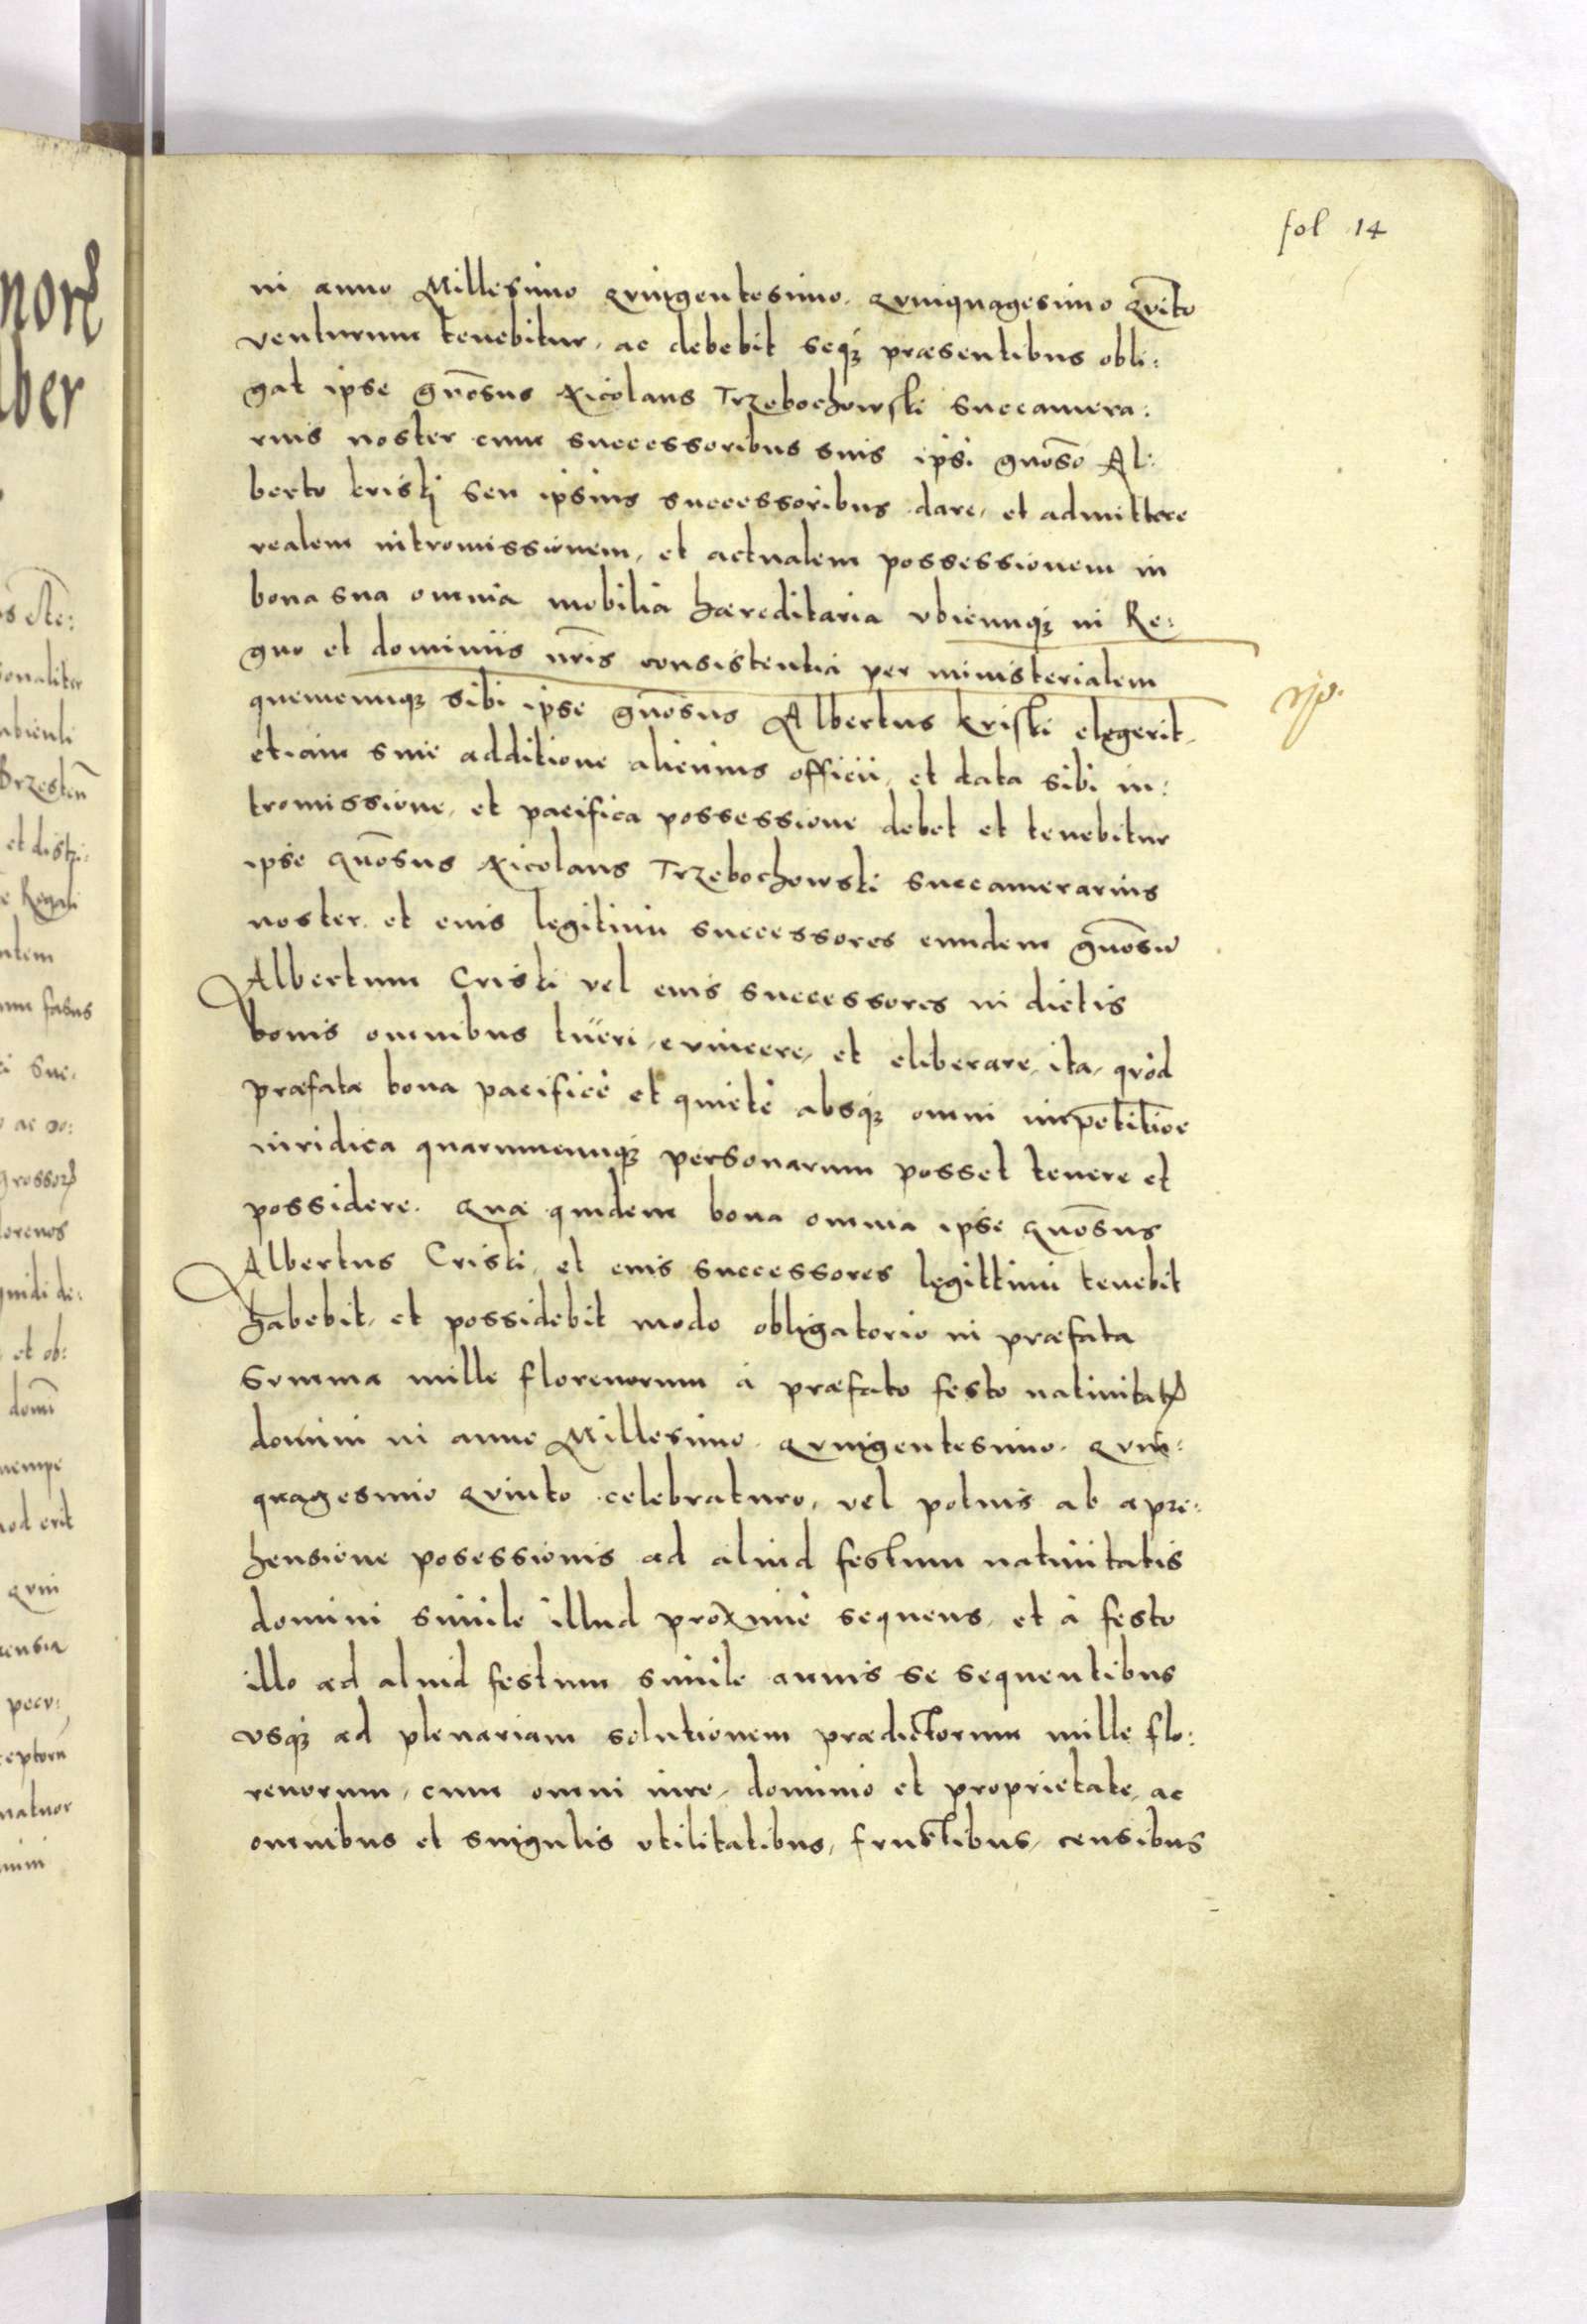 fol 14
in anno Millesimo quingentesimo. quinquagesimo qvīto
venturum tenebitur, ac debebit seqꝫ præsentibus obli:
gat ipse gnōsus Nicolaus Trzebochowski succamera:
rius noster cum successoribus suis ipsi gnōso Al:
berto kriski seu ipsius successoribus dare, et admittere
realem intromissionem, et actualem possessionem in
bona sua omnia mobilia hæreditaria vbicunqꝫ in Re:
gno et dominiis nr̄is consistentia per ministerialem
quemcunqꝫ sibi ipse gnōsus Albertus kriski elegerit,
etiam sine additione alicuius officii, et data sibi in:
tromissione, et pacifica possessione debet et tenebitur
ipse gnōsus Nicolaus Trzebochowski succamerarius
noster, et eius legitimi successores eundem gnōsū
Albertum Criski vel eius successores in dictis
bonis omnibus tueri, evincere, et eliberare, ita, qvòd
præfata bona pacificè et quietè absqꝫ omni impetitiōe
iuridica quarumcunqꝫ personarum posset tenere et
possidere. Quæ quidem bona omnia ipse gnōsus
Albertus Criski, et eius successores legittimi tenebit
habebit, et possidebit modo obligatorio in præfata
summa mille florenorum à præfato festo natiuitatꝭ
domini in anno Millesimo. quingentesimo. quin:
quagesimo quinto celebraturo, vel potius ab apre:
hensione posessionis ad aliud festum natiuitatis
domini simile illud proximè sequens, et à festo
illo ad aliud festum simile annis se sequentibus
vsqꝫ ad plenariam solutionem prædictorum mille flo:
renorum, cum omni iure, dominio et proprietate, ac
omnibus et singulis vtilitatibus, fructibus, censibus